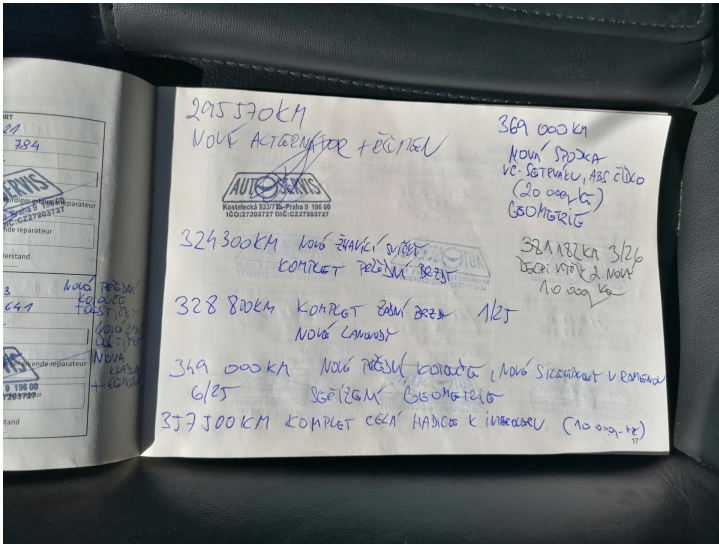 RT
21
784
SERVIS
Praha 9 196 00
27203727
ende reparateur
terstand
641
kende reparateur
9 196 00
27203727
stand
NOVÉ PŘEDNÍ
KOTOUČE
NOVÁ
295570KM
NOVÝ ALTERNÁTOR + ŘEMEN
AUTOSERVIS
Kostelecká 933/77 Praha 9 196 00
IČO:27203727 DIČ:CZ27203727
324300KM NOVÉ ŽHAVÍCÍ SVÍČKY
KOMPLET PŘEDNÍ BRZDY
328 800KM KOMPLET ZADNÍ BRZDY 1/25
NOVÉ LANOVODY
349 000KM NOVÉ PŘEDNÍ KOTOUČE, NOVÉ SILENTBLOKY V RAMENOU
6/25 SEŘÍZENÍ GEOMETRIE
357500KM KOMPLET CELÁ HADICE K INTERCOOLERU (10 000,-Kč)
369 000KM
NOVÁ SPOJKA
VČ. SETRVAČNÍKU, ABS ČIDLO
(20 000,-Kč)
GEOMETRIE
381 182KM 3/26
2 NOVÉ
10 000 Kč